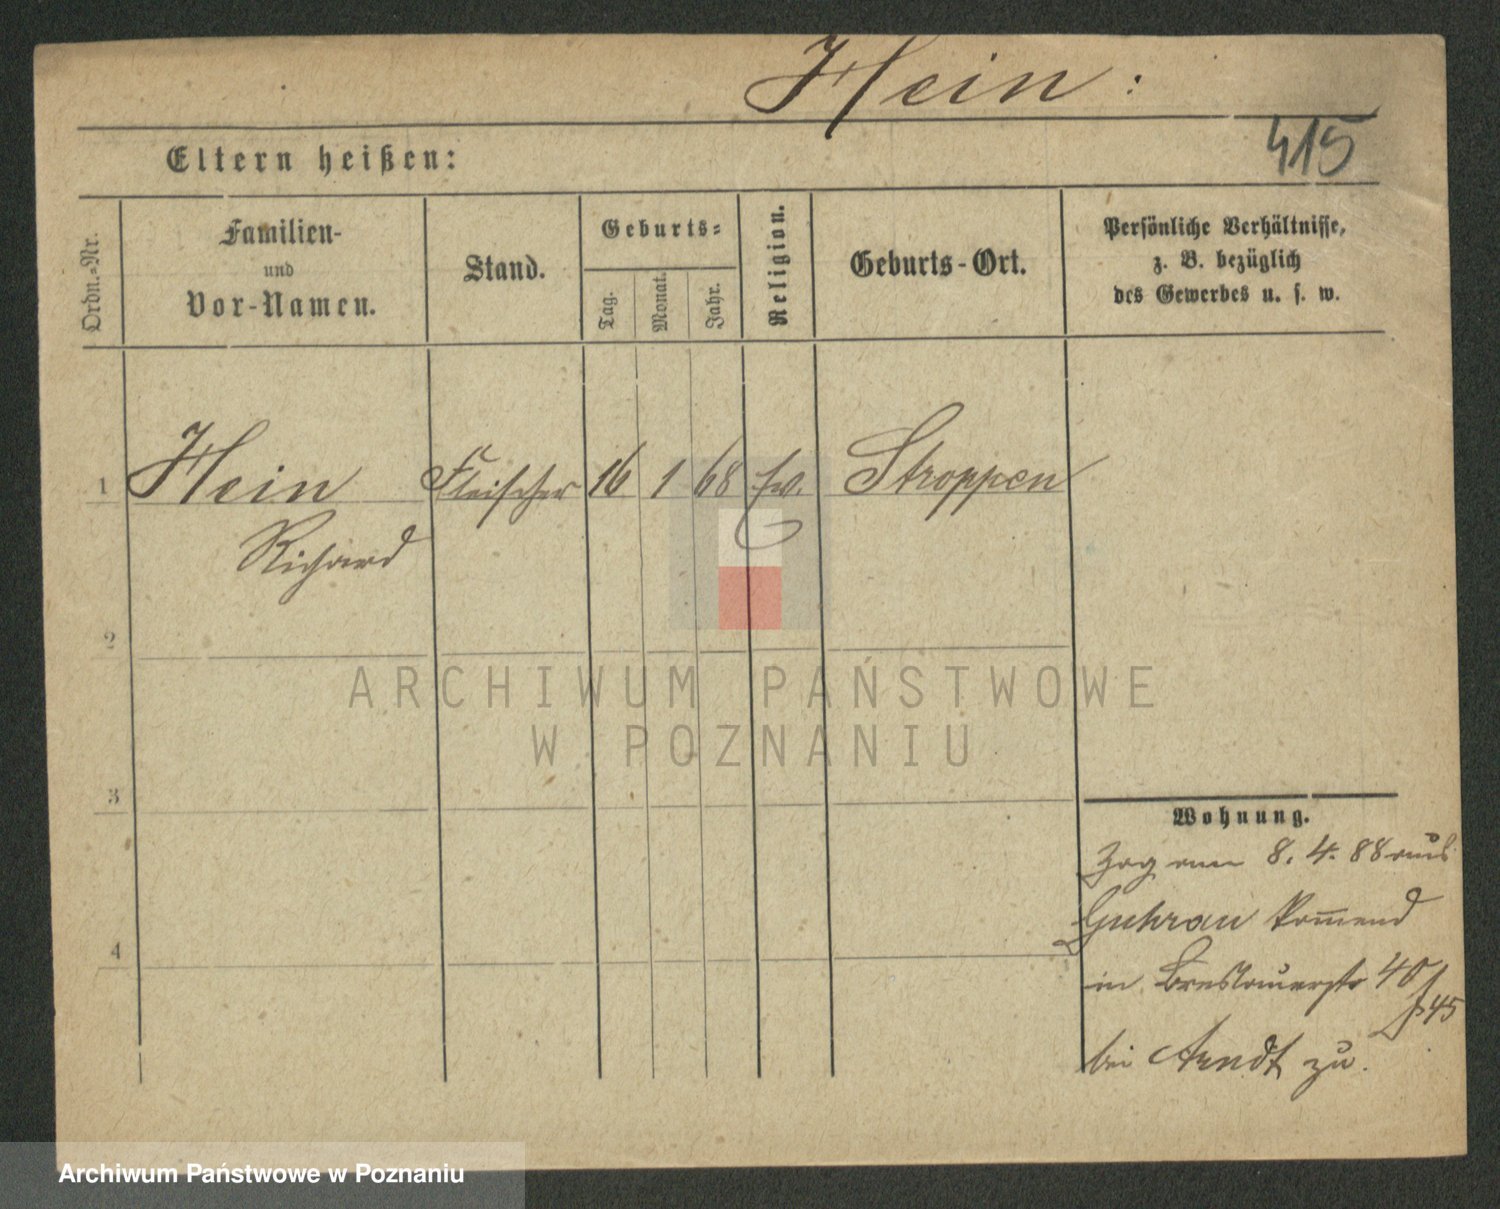 Hein:
415
Eltern heißen:
Ordn.=Nr.
Familien-
und
Vor-Namen.
Stand.
Geburts=
Tag.
Monat.
Jahr.
Religion.
Geburts-Ort.
Persönliche Verhältnisse,
z. B. bezüglich
des Gewerbes u. s. w.
1 Hein Fleischer 16 1 68 ev. Stroppen
Richard
2
3
4
ARCHIWUM PAŃSTWOWE
W POZNANIU
Wohnung.
Zog am 8. 4. 88 aus
Guhrau kom̅end
in Breslauerstr 40/
45
bei Arndt zu.
Archiwum Państwowe w Poznaniu